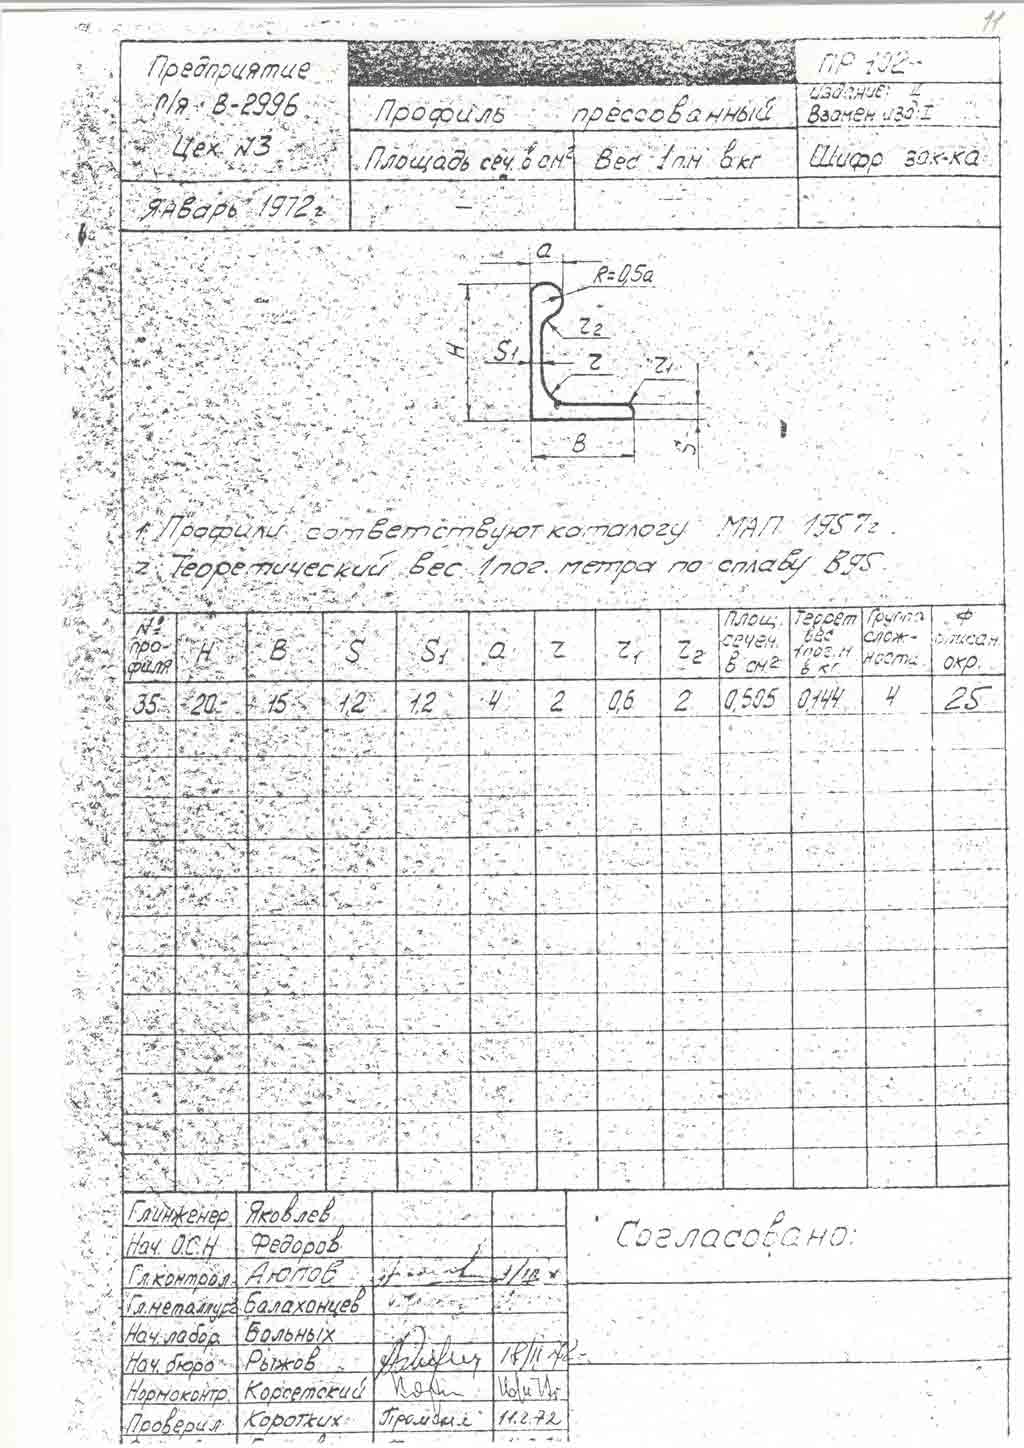 11
Предприятие
п/я В-2996
Цех N3
Январь 1972г
Профиль прессованный
Площадь сеч. в см²
Вес 1 п.м в кг
—
ПР 102-
издание: II
Взамен изд. I
Шифр зак-ка
a
R=0,5a
H
S1
r2
r
r1
B
S
1. Профили соответствуют каталогу МАП 1957г.
2. Теоретический вес 1 пог. метра по сплаву В95.
№ про-филя H B S S1 a r r1 r2 Площ. сечен. в см² Теорет вес 1пог.м в кг Группа слож-ности Ф описан окр.
35 20 15 1,2 1,2 4 2 0,6 2 0,505 0,144 4 25
Гл.инженер Яковлев
Нач. О.С.Н Федоров
Гл.контрол. Аюпов
Гл.металлург Балахонцев
Нач.лабор. Больных
Нач.бюро Рыжов 18/II 72
Нормоконтр. Корсетский
Проверил Коротких 11.2.72
Согласовано: